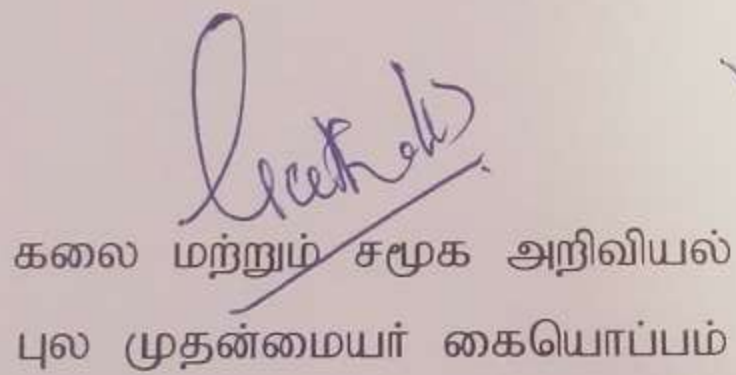 கலை மற்றும் சமூக அறிவியல்
புல முதன்மையர் கையொப்பம்